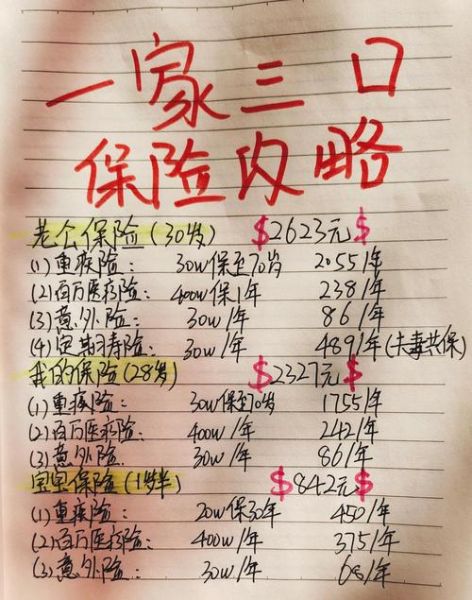 一家三口
保险攻略
老公保险(30岁) $2623元$
(1)重疾险: 30w保至70岁 2055/年
(2)百万医疗险: 400w保1年 238/年
(3)意外险: 30w/年 86/年
(4)定期寿险: 30w/年 489/年(夫妻共保)
我的保险(28岁) $2327元$
(1)重疾险: 30w保至70岁 1755/年
(2)百万医疗险: 400w/年 242/年
(3)意外险 30w/年 86/年
宝宝保险(1岁半) $842元$
(1)重疾险: 20w保30年 450/年
(2)百万医疗险: 400w/年 375/年
(3)意外险: 30w/年 68/年